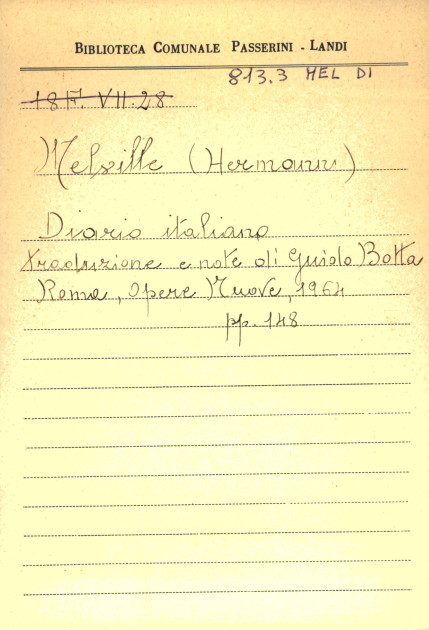 BIBLIOTECA COMUNALE PASSERINI - LANDI
813.3 MEL DI
18 F. VII. 28
Melville (Hermann)
Diario italiano
traduzione e note di Guido Botta
Roma, Opere Nuove, 1964
pp. 148